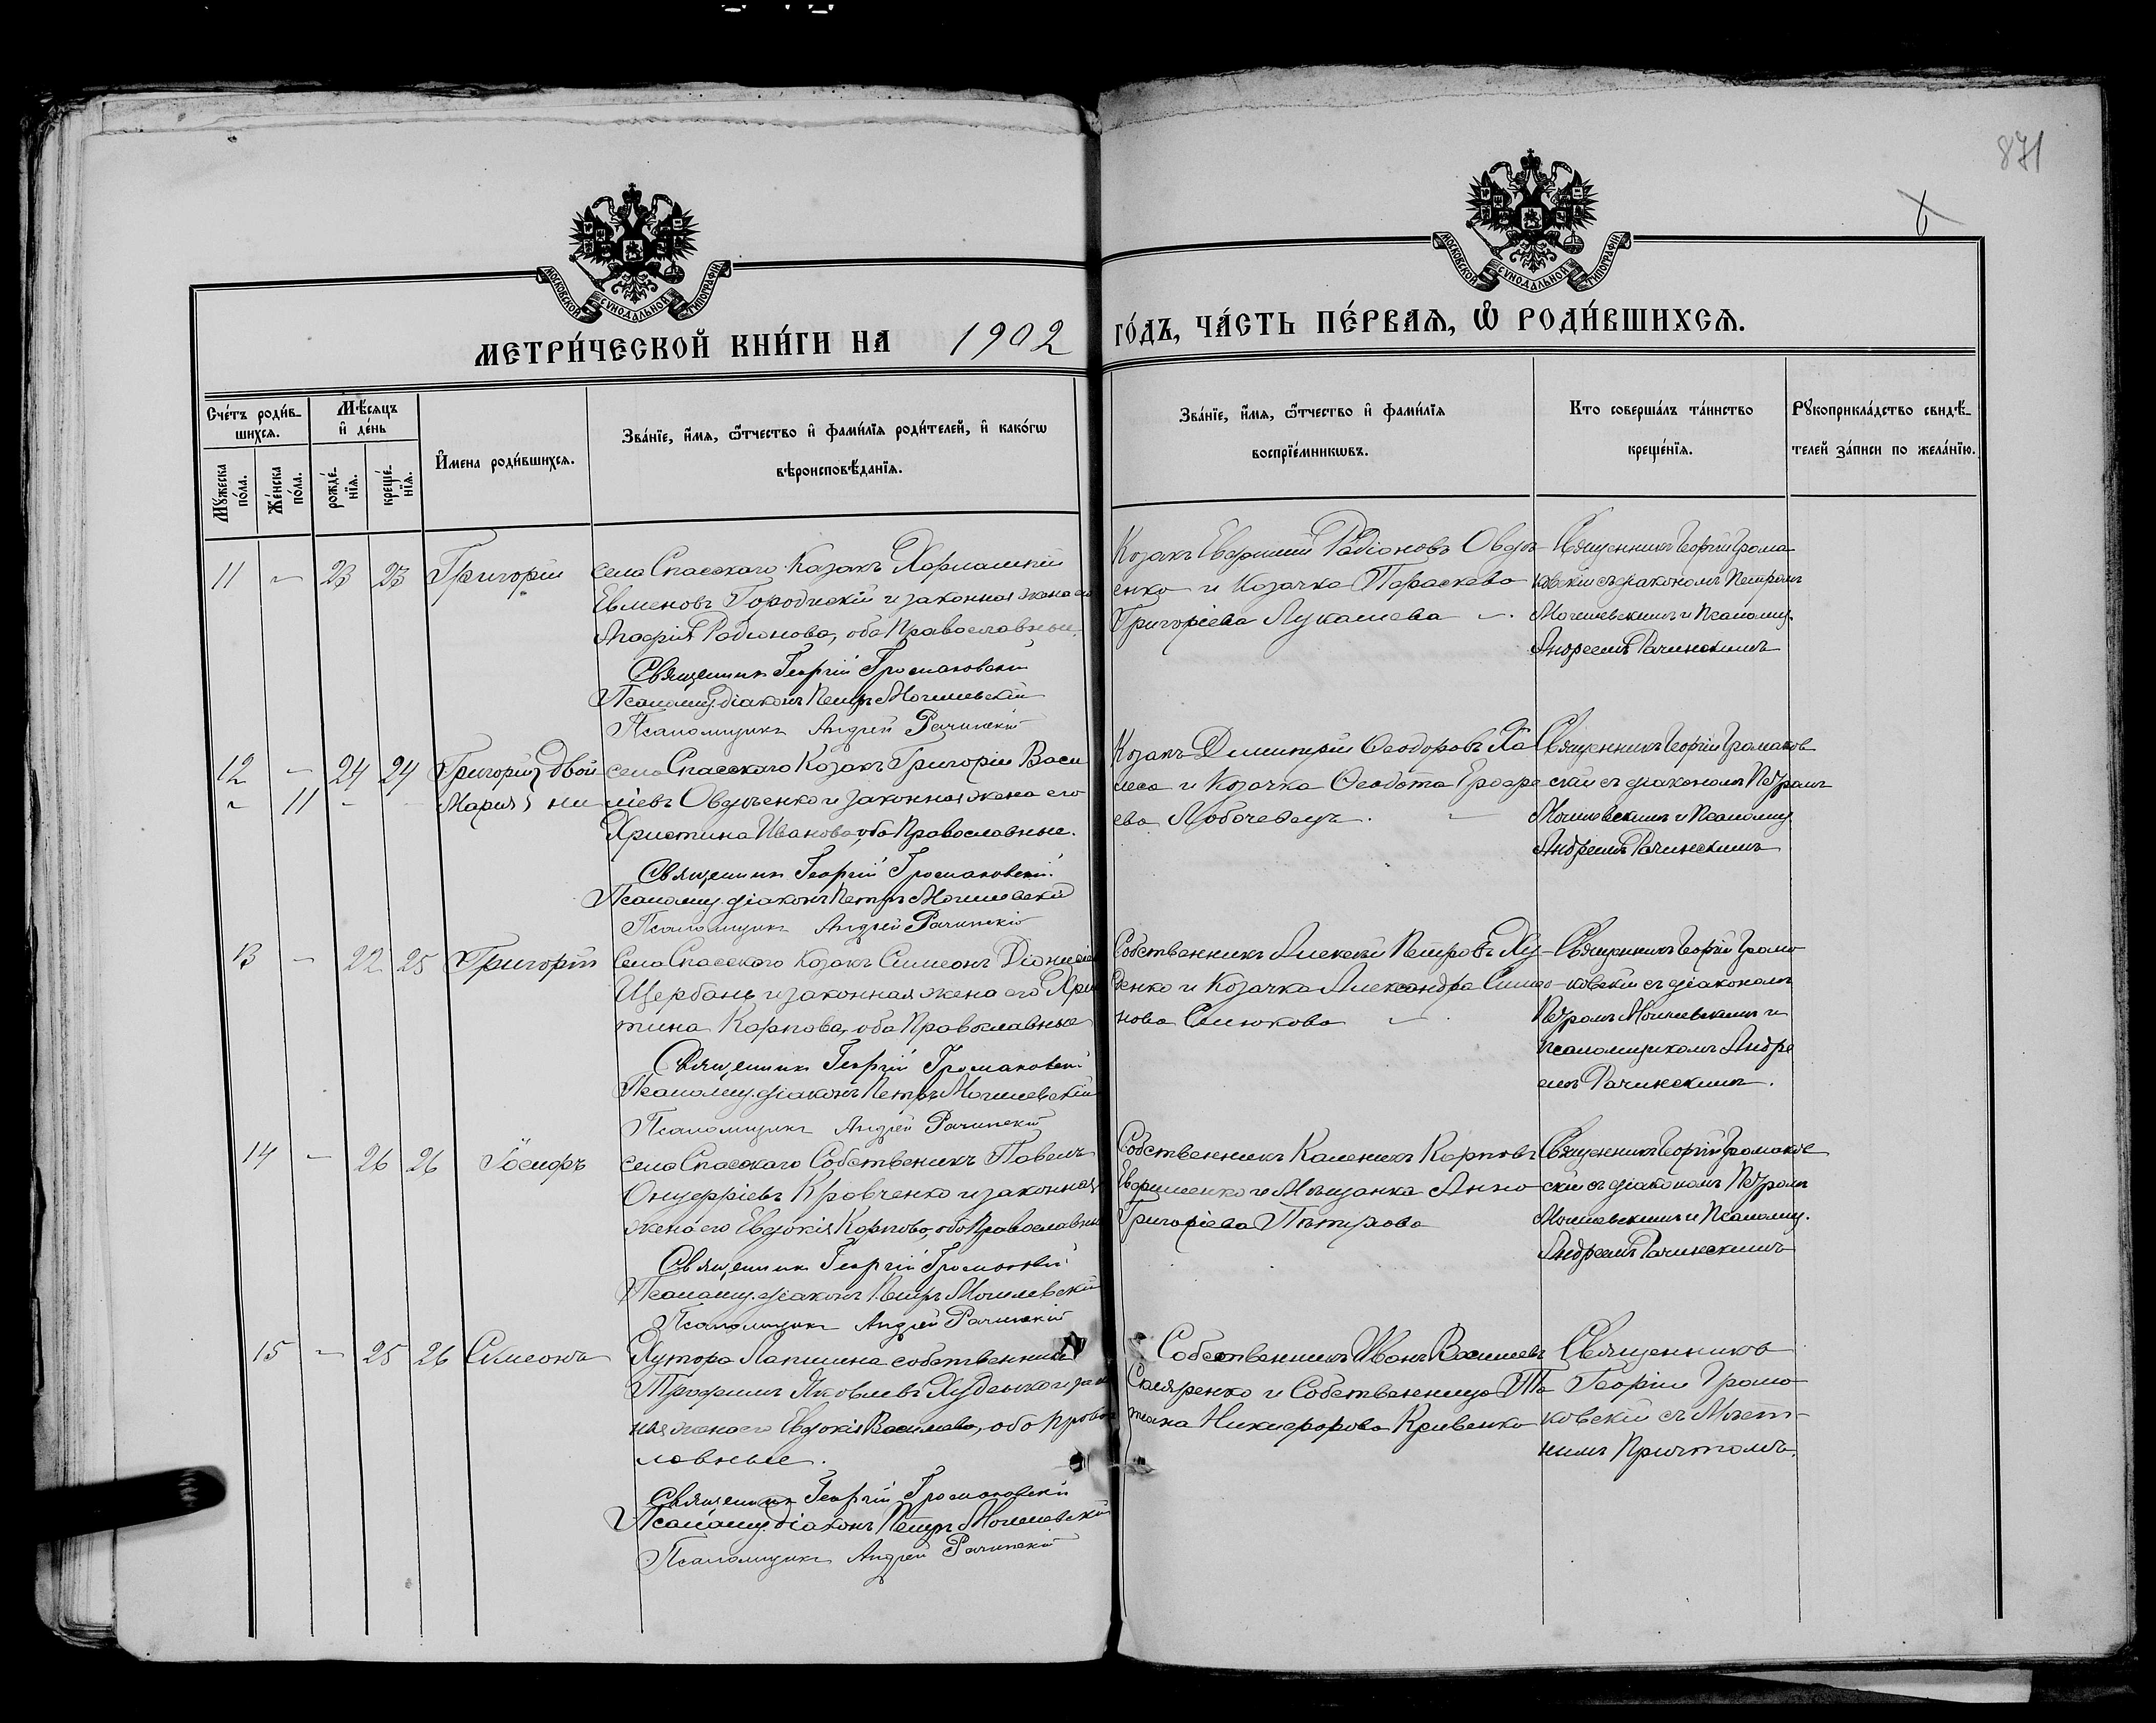 871
6
МОСКОВСКОЙ СѴНОДАЛЬНОЙ ТИПОГРАФІИ
МОСКОВСКОЙ СѴНОДАЛЬНОЙ ТИПОГРАФІИ
МЕТРИ́ЧЕСКОЙ КНИ́ГИ НА 1902 ГО́ДЪ, ЧА́СТЬ ПЕ́РВАѦ, Ѽ РОДИ́ВШИХСѦ.
Сче́тъ роди́в-
шихсѧ.
Мꙋ́жеска по́ла.
Же́нска по́ла.
Мѣ́сѧцъ
и҆ де́нь
рожде́-
нїѧ.
креще́-
нїѧ.
И҆мена роди́вшихсѧ.
Зва́нїе, и҆́мѧ, ѻ҆́тчество и҆ фами́лїѧ роди́телей, и҆ како́гѡ
вѣроисповѣ́данїѧ.
Зва́нїе, и҆́мѧ, ѻ҆́тчество и҆ фами́лїѧ
воспрїе́мникѡвъ.
Кто соверша́лъ та́инство
креще́нїѧ.
Рꙋкоприкла́дство свидѣ́-
телей за́писи по жела́нїю.
11 - 23 23 Григорій
села Спасскаго Казакъ Харлампій
Евменовъ Городискій и законная жена его
Агафія Родионова, оба Православные.
Священникъ Георгій Громаковскій
Псаломщ. діаконъ Петръ Могилевскій
Псаломщикъ Андрей Рачинскій
Козакъ Евфимій Родіоновъ Овдѣ-
енко и Козачка Параскева
Григоріева Лукашева -.
Священникъ Георгій Грома-
ковскій съ діакономъ Петромъ
Могилевскимъ и Псаломщ.
Андреемъ Рачинскимъ
12 - 24 24 Григорій } двой
- 11 - - Марія } ни
села Спасскаго Козакъ Григорій Васи
ліевъ Овдѣенко и законная жена его
Христина Иванова, оба Православные.
Священникъ Георгій Громаковскій.
Псаломщ. діаконъ Петръ Могилевскій
Псаломщикъ Андрей Рачинскій
Козакъ Димитрій Ѳеодоровъ
и Козачка Ѳеодота
ева
Священникъ Георгій Громаков
скій съ діакономъ Петромъ
Могилевскимъ и Псаломщ
Андреемъ Рачинскимъ
13 - 22 25 Григорій
Села Спасскаго Козакъ Симеонъ Діонисіев
Щербань и законная жена его Хрис
тина Карпова, оба Православные
Священникъ Георгій Громаковскій
Псаломщ. діаконъ Петръ Могилевскій
Псаломщикъ Андрей Рачинскій
Собственникъ Алексѣй Петровъ Ху-
денко и Козачка Александра Симео-
нова Силюкова -.
Священникъ Георгій Грома
ковскій съ діакономъ
Петромъ Могилевскимъ и
псаломщикомъ Андре
емъ Рачинскимъ.
14 - 26 26 Іосифъ
села Спасскаго Собственникъ Павелъ
Онуфріевъ Кравченко и законная
жена его Евдокія Карпова, оба Православные
Священникъ Георгій Громаковскій
Псаломщ. діаконъ Петръ Могилевскій
Псаломщикъ Андрей Рачинскій
Собственникъ Каленикъ Карповъ
Евфименко и Мѣщанка Анна
Григоріева
Священникъ Георгій Громаков
скій съ діакономъ Петромъ
Могилевскимъ и Псаломщ.
Андреемъ Рачинскимъ
15 - 25 26 Симеонъ
Хутора Лапшина собственникъ
Трофимъ Яковлевъ Худенко и закон
ная жена его Евдокія Васильева, оба Правос
лавные.
Священникъ Георгій Громаковскій
Псаломщ. діаконъ Петръ Могилевскій
Псаломщикъ Андрей Рачинскій
Собственникъ Иванъ Васильевъ
Скляренко и Собственница Та
тіана Никифорова Кривенко
Священникъ
Георгій Грома-
ковскій съ Мѣст-
нымъ Причтомъ.